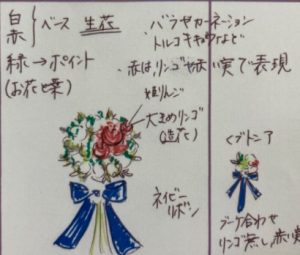 白
赤
ベース 生花
・バラやカーネーション
トルコキキョウなど
緑→ポイント
(お花と葉)
・赤はリンゴや赤い実で表現
姫りんご
大きめリンゴ
(造花)
ネイビー
リボン
<ブトニア
ブーケ合わせ
リンゴ無し、赤い実